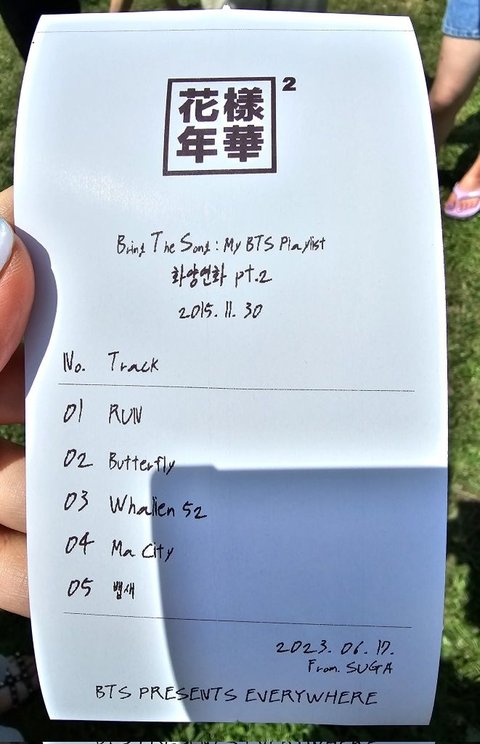 花樣 2
年華
Bring The Song : My BTS Playlist
화양연화 pt.2
2015. 11. 30
No. Track
01 RUN
02 Butterfly
03 Whalien 52
04 Ma City
05 뱁새
2023. 06. 17.
From. SUGA
BTS PRESENTS EVERYWHERE